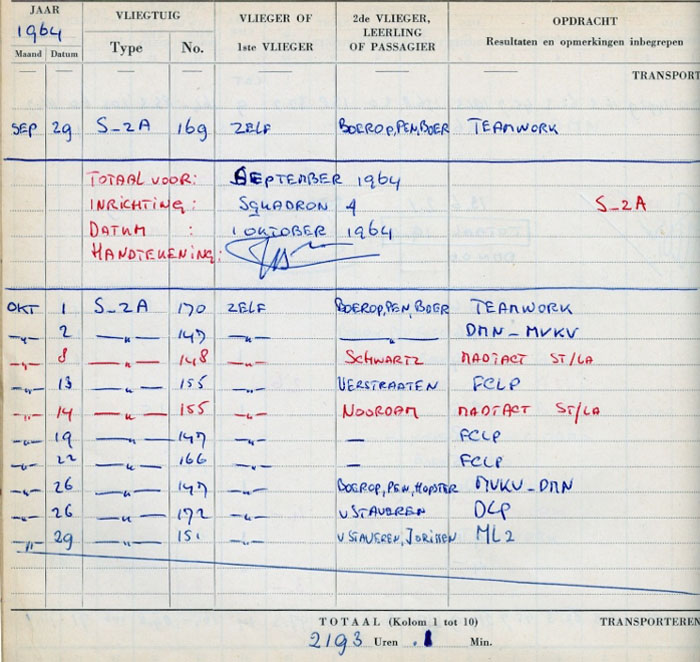 JAAR VLIEGTUIG VLIEGER OF 2de VLIEGER, OPDRACHT
1964 1ste VLIEGER LEERLING Resultaten en opmerkingen inbegrepen
Maand Datum Type No. OF PASSAGIER
TRANSPORT
SEP 29 S-2A 169 ZELF BOEROP, PEN, BOER TEAMWORK
TOTAAL VOOR: SEPTEMBER 1964
INRICHTING: SQUADRON 4 S-2A
DATUM : 1 OKTOBER 1964
HANDTEKENING:
OKT 1 S-2A 170 ZELF BOEROP, PEN, BOER TEAMWORK
—"— 2 —"— 147 —"— —"— DMN - MVKV
—"— 8 —"— 148 —"— SCHWARTZ MADTACT ST/LA
—"— 13 —"— 155 —"— VERSTRAATEN FCLP
—"— 14 —"— 155 —"— NOORDAM MADTACT ST/LA
—"— 19 —"— 147 —"— — FCLP
—"— 22 —"— 166 —"— — FCLP
—"— 26 —"— 147 —"— BOEROP, PEN, HOPSTER MVKV - DMN
—"— 26 —"— 172 —"— v STAVEREN DLP
—"— 29 —"— 151 —"— v STAVEREN, JORISSEN ML2
TOTAAL (Kolom 1 tot 10) TRANSPORTEREN
2193 Uren . 1 Min.